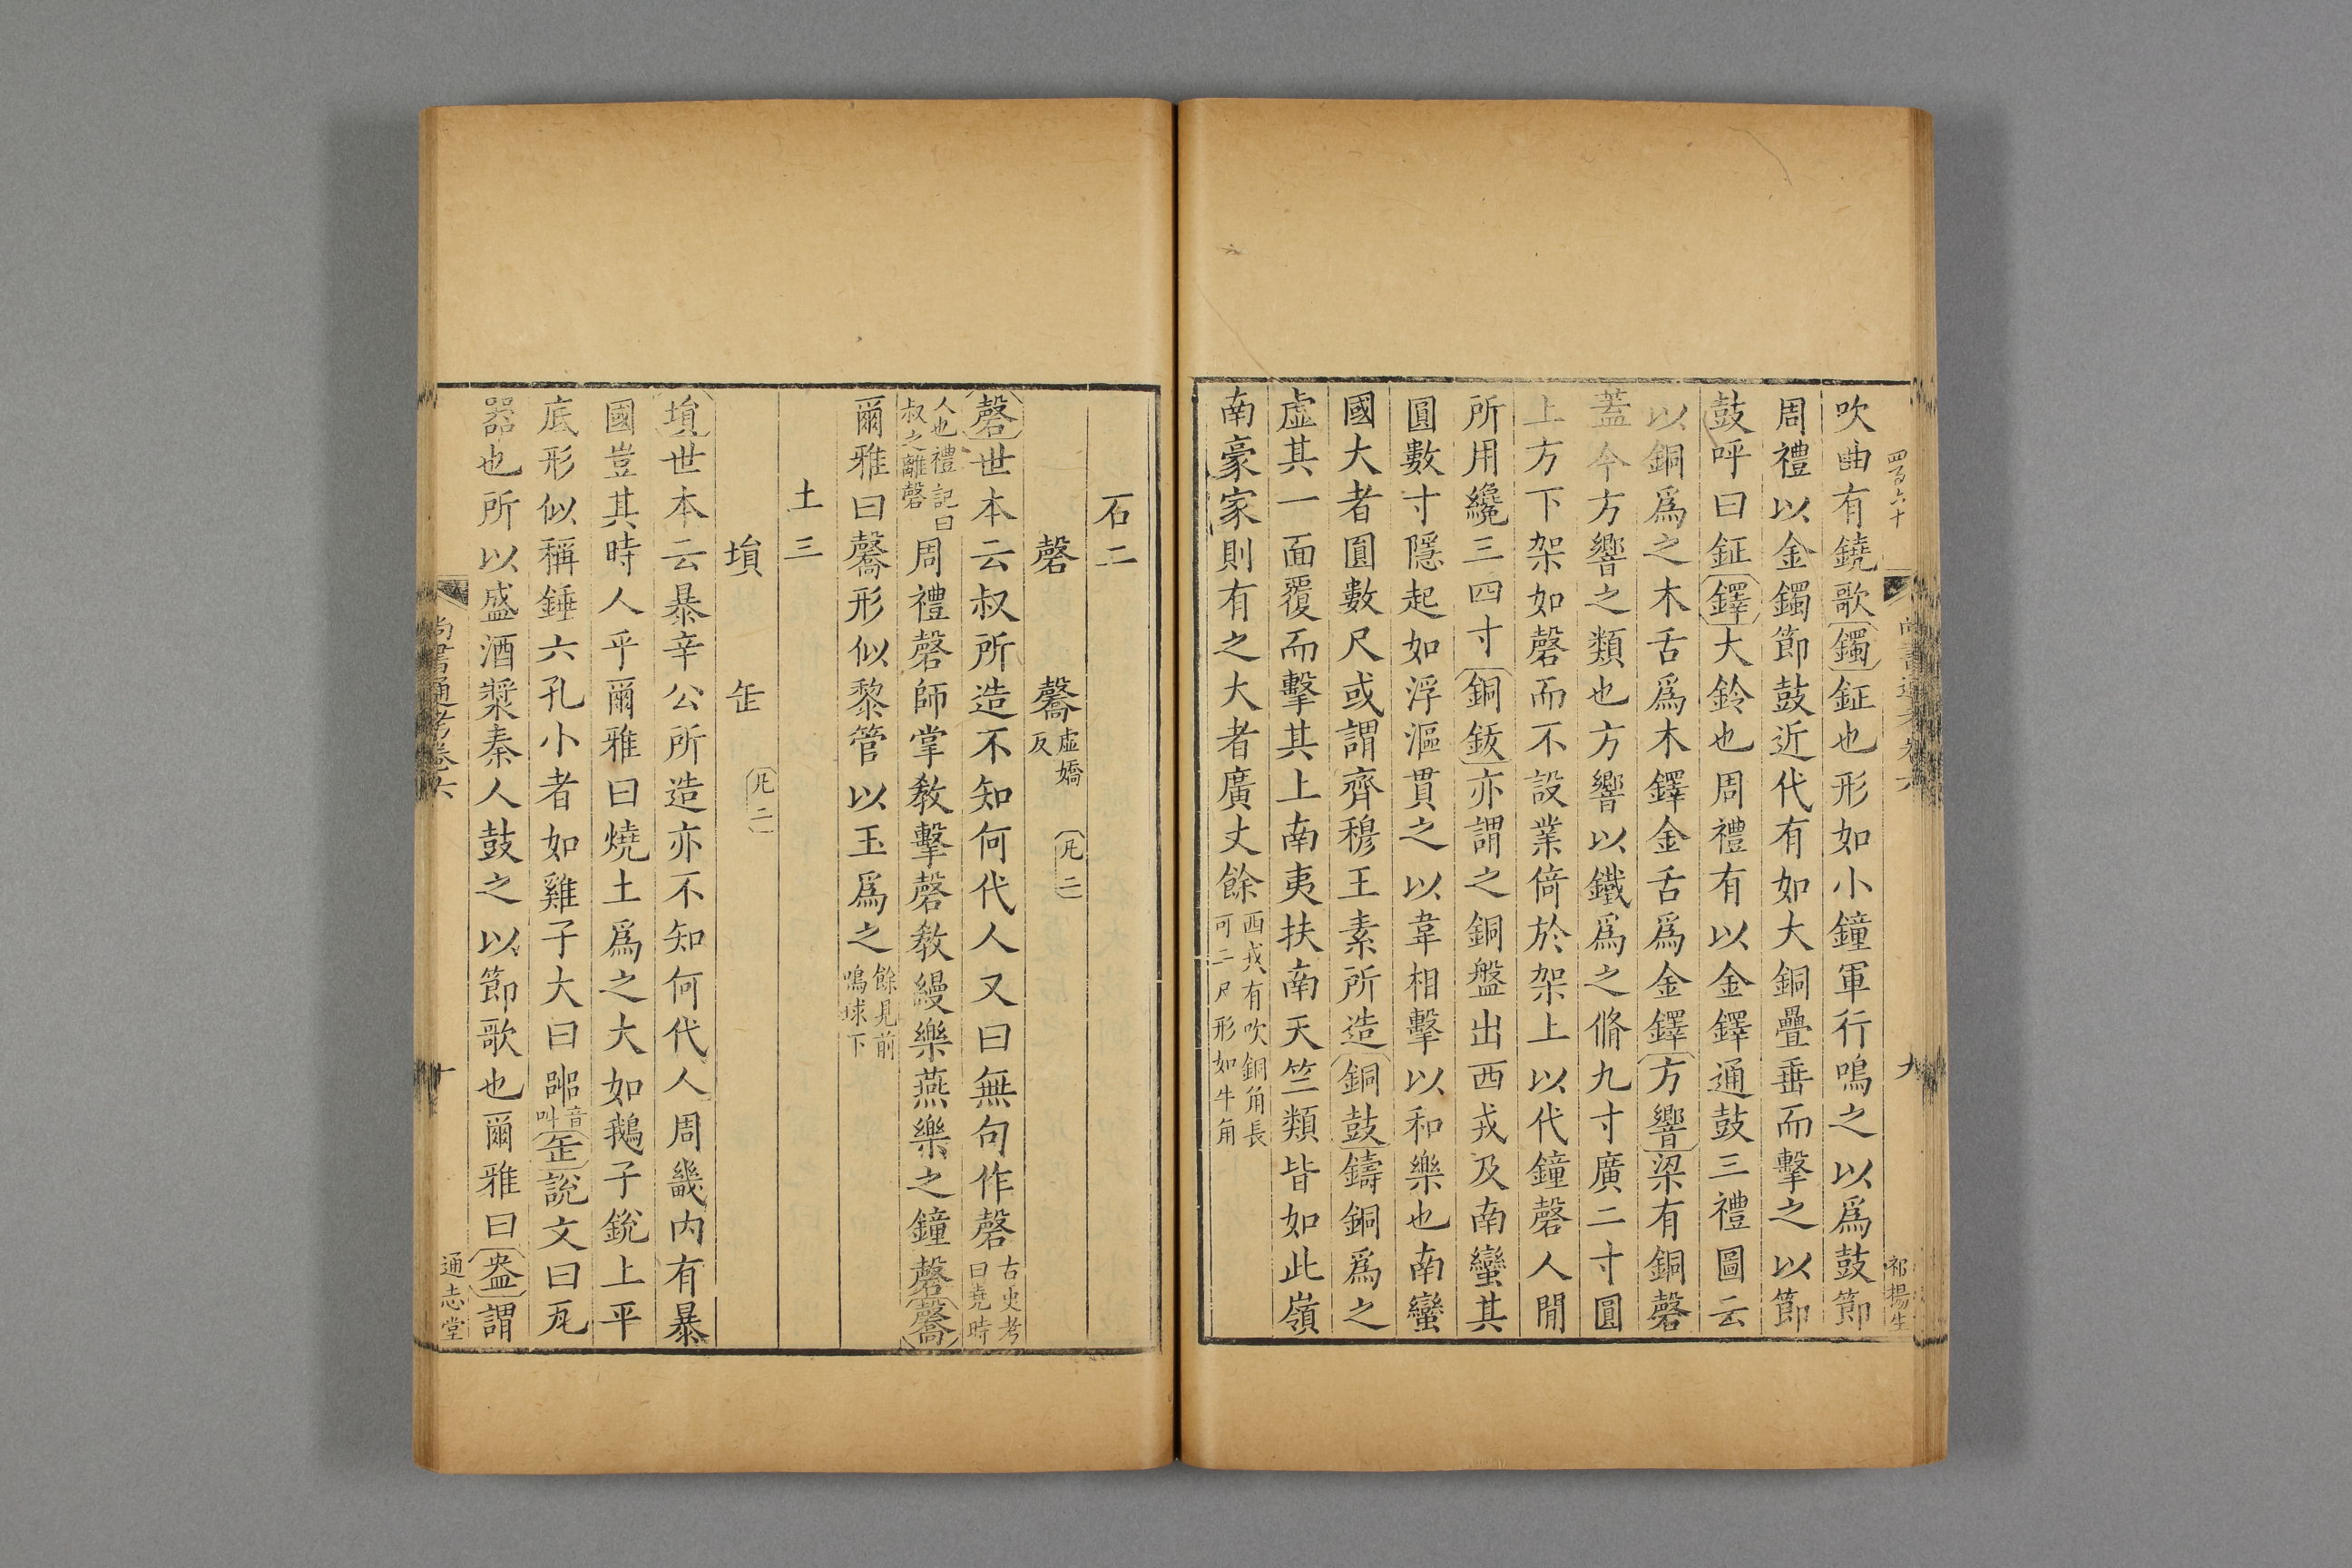 四百六十
尚書通考卷六
九
祁揚生
吹曲有鐃歌鐲鉦也形如小鐘軍行鳴之以爲鼓節
周禮以金鐲節鼓近代有如大銅疊垂而擊之以節
鼓呼曰鉦鐸大鈴也周禮有以金鐸通鼓三禮圖云
以銅爲之木舌爲木鐸金舌爲金鐸方響梁有銅磬
蓋今方響之類也方響以鐵爲之脩九寸廣二寸圓
上方下架如磬而不設業倚於架上以代鐘磬人閒
所用纔三四寸銅鈸亦謂之銅盤出西戎及南蠻其
圓數寸隱起如浮漚貫之以韋相擊以和樂也南蠻
國大者圓數尺或謂齊穆王素所造銅鼓鑄銅爲之
虛其一面覆而擊其上南夷扶南天竺類皆如此嶺
南豪家則有之大者廣丈餘西戎有吹銅角長可二尺形如牛角
石二
磬 毊虛嬌反 凡二
磬世本云叔所造不知何代人又曰無句作磬古史考曰堯時
人也禮記曰叔之離磬周禮磬師掌教擊磬教縵樂燕樂之鐘磬毊
爾雅曰毊形似黎管以玉爲之餘見前鳴球下
土三
塤 缶 凡二
塤世本云暴辛公所造亦不知何代人周畿內有暴
國豈其時人乎爾雅曰燒土爲之大如鵝子銳上平
底形似稱錘六孔小者如雞子大曰嘂音叫缶說文曰瓦
器也所以盛酒漿秦人鼓之以節歌也爾雅曰盎謂
尚書通考卷六
十
通志堂